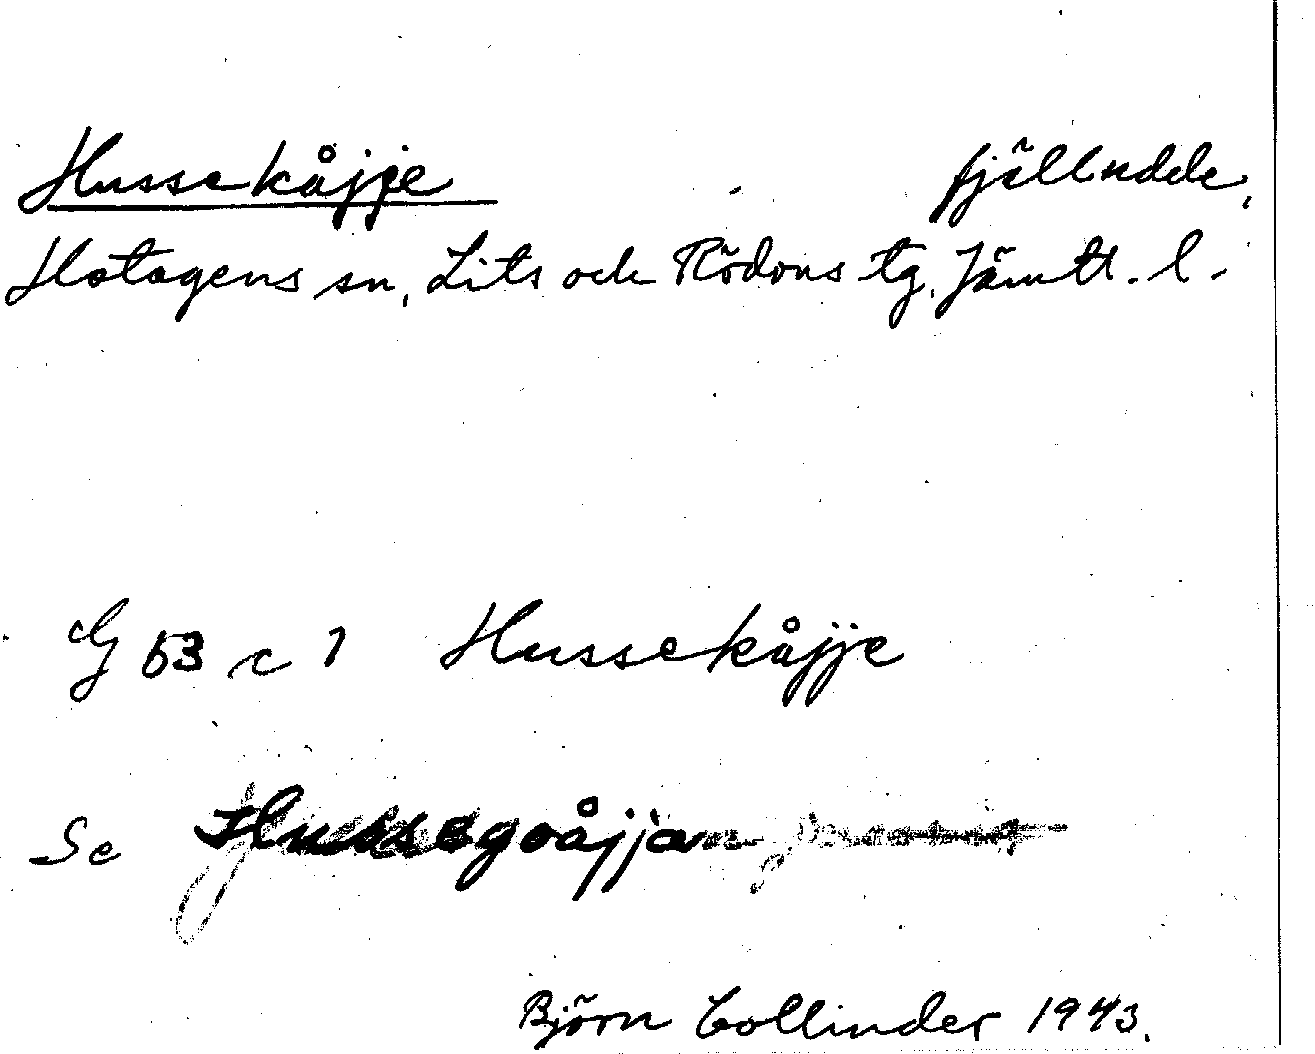 Hussekåjje fjälludde,
Hotagens sn, Lits och Rödöns tg, Jämtl. l.
G 53 c 1 Hussekåjje
Se Hussegoåjja
Björn Collinder 1943.